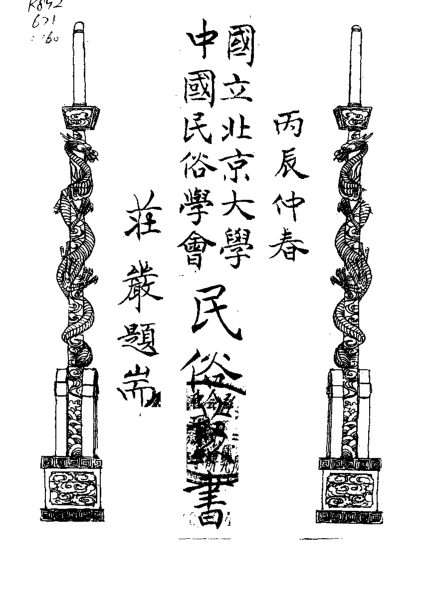 丙辰仲春
國立北京大學
中國民俗學會
民俗 書
莊嚴題耑
K892
671